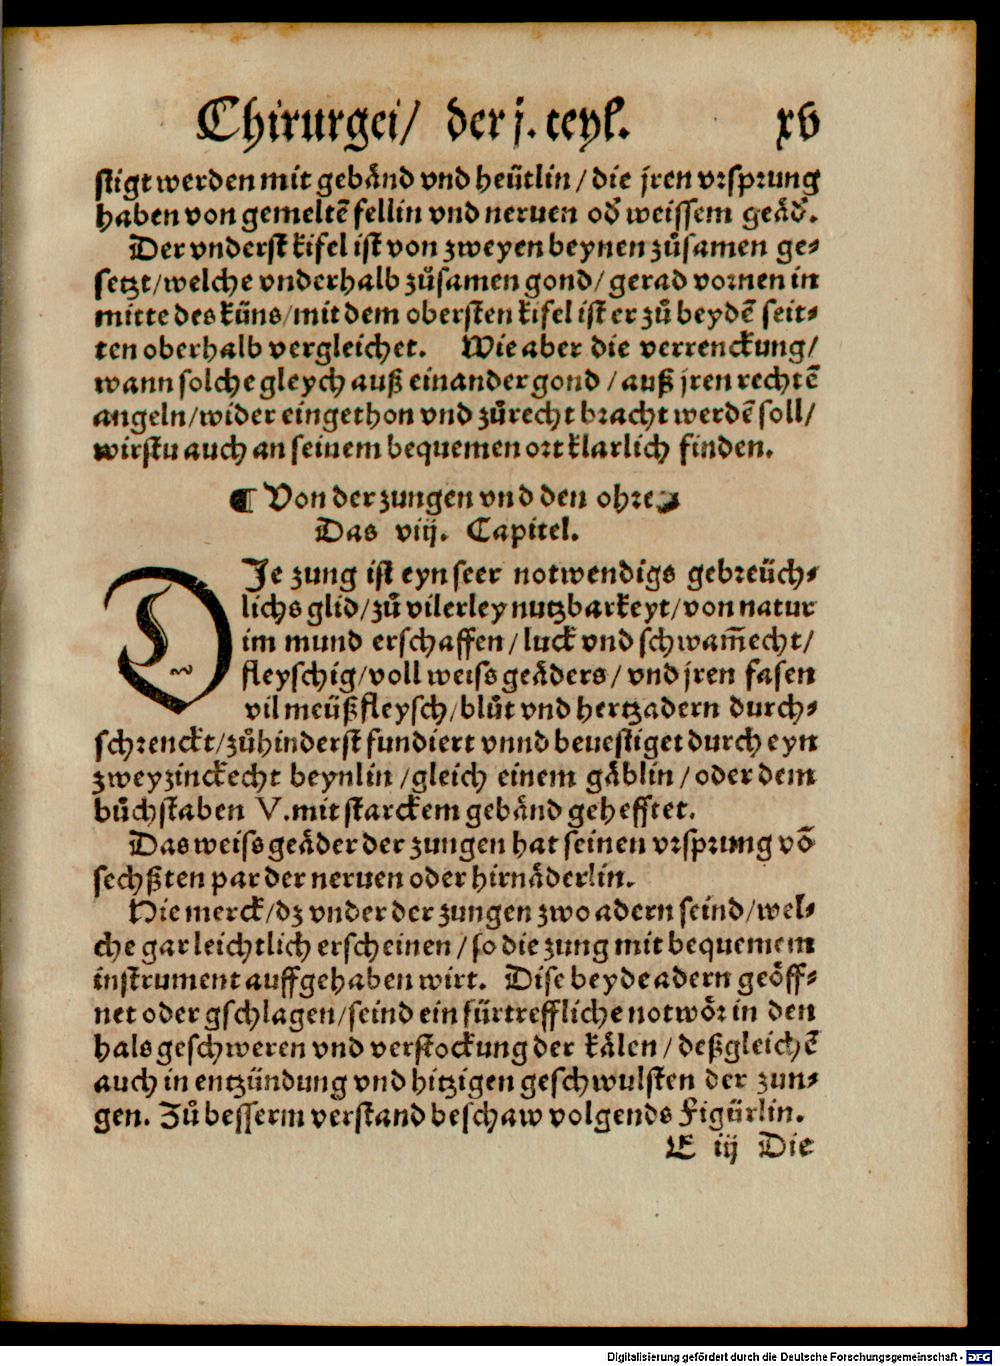 Chirurgei/ der j. teyl. xv
stigt werden mit gebånd vnd heütlin/ die jren vrsprung
haben von gemeltẽ fellin vnd neruen oď weissem geåď.
Der vnderst kifel ist von zweyen beynen zůsamen ge⸗
setzt/welche vnderhalb zůsamen gond/ gerad vornen in
mitte des küns/mit dem obersten kifel ist er zů beydẽ seit⸗
ten oberhalb vergleichet. Wie aber die verrenckung/
wann solche gleych auß einander gond / auß jren rechtẽ
angeln/wider eingethon vnd zůrecht bracht werdẽ soll/
wirstu auch an seinem bequemen ort klarlich finden.
¶ Von der zungen vnd den ohrẽ
Das viij. Capitel.
DJe zung ist eyn seer notwendigs gebreüch⸗
lichs glid/zů vilerley nutzbarkeyt/von natur
im mund erschaffen/luck vnd schwam̃echt/
fleyschig/voll weiss geåders/ vnd jren fasen
vil meüßfleysch/blůt vnd hertzadern durch⸗
schrenckt/zůhinderst fundiert vnnd beuestiget durch eyn
zweyzinckecht beynlin /gleich einem gåblin/oder dem
bůchstaben V. mit starckem gebånd gehefftet.
Das weiss geåder der zungen hat seinen vrsprung võ
sechßten par der neruen oder hirnåderlin.
Hie merck/dz vnder der zungen zwo adern seind/wel⸗
che gar leichtlich erscheinen/so die zung mit bequemem
instrument auffgehaben wirt. Dise beyde adern geöff⸗
net oder gschlagen/seind ein fürtreffliche notwör in den
hals geschweren vnd verstockung der kålen/deßgleichẽ
auch in entzündung vnd hitzigen geschwulsten der zun⸗
gen. Zů besserm verstand beschaw volgends Figürlin.
E iij Die
Digitalisierung gefördert durch die Deutsche Forschungsgemeinschaft - DFG